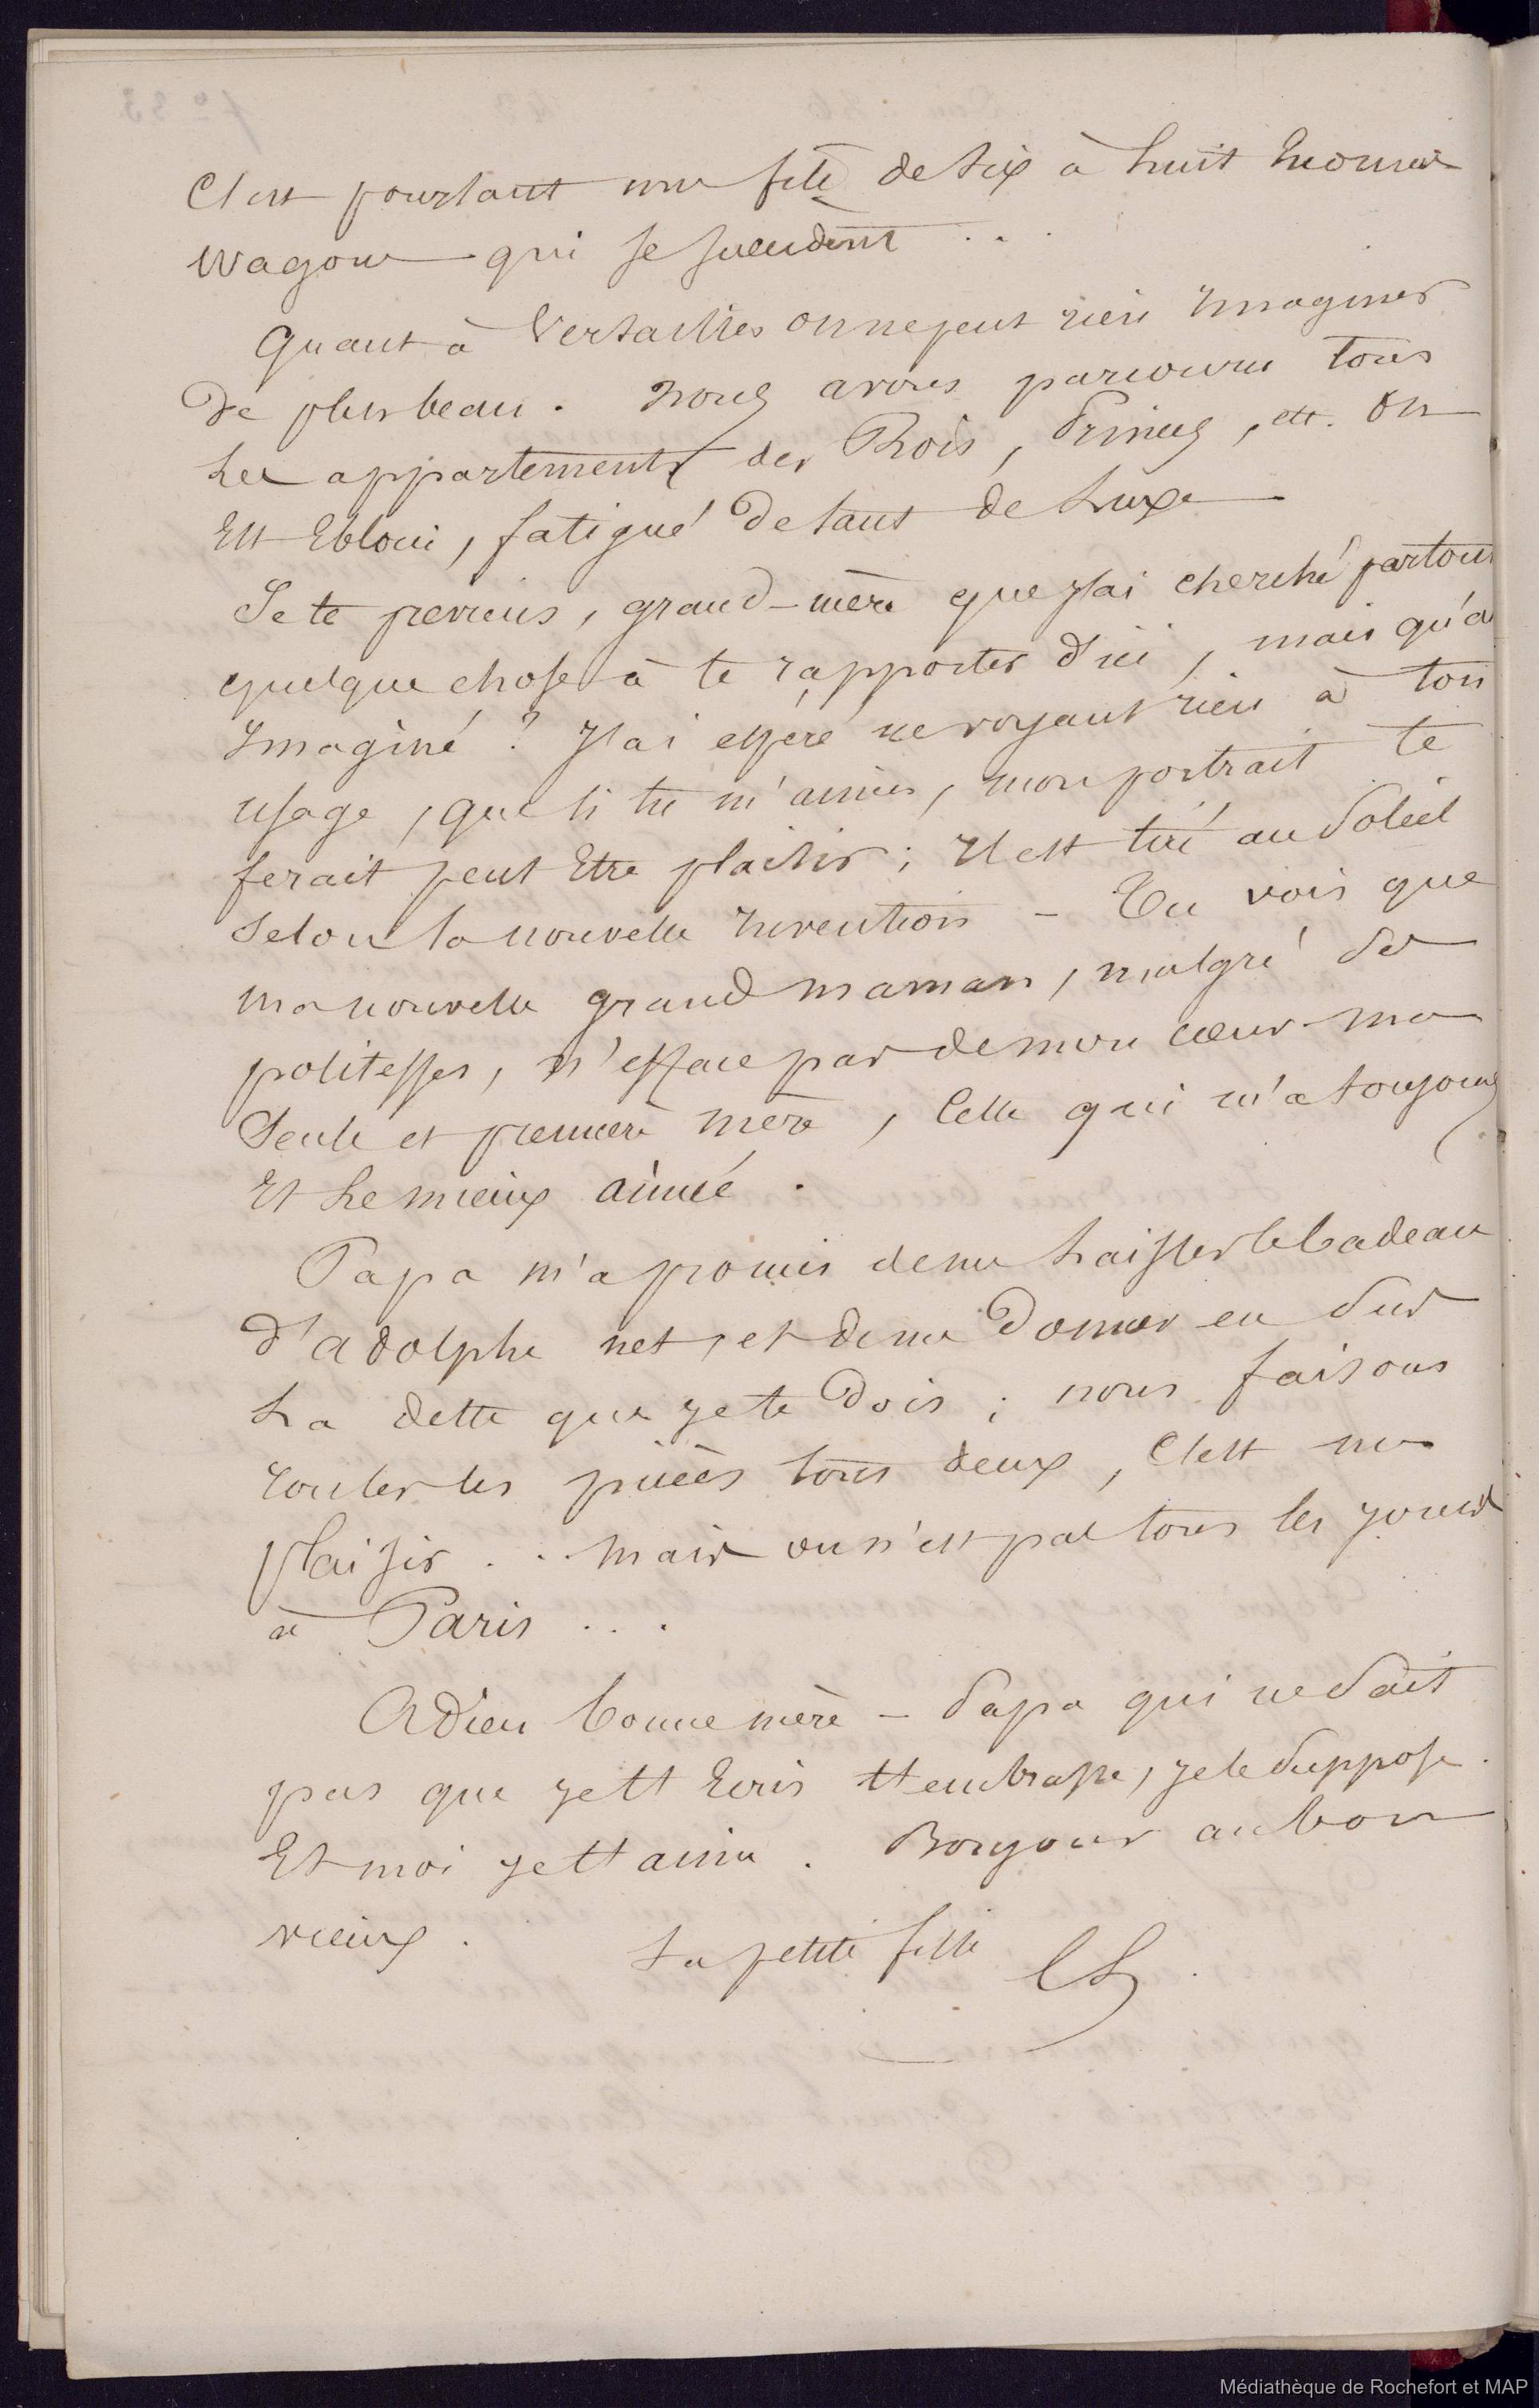 C'est pourtant une file de six à huit énormes
wagons qui se succèdent ...
Quant à Versailles on ne peut rien imaginer
de plus beau. Nous avons parcouru tous
les appartements des Rois, Princes, etc. On
est ébloui, fatigué de tant de luxe
Je te préviens, grand-mère que j'ai cherché partout
quelque chose à te rapporter d'ici, mais qu'ai
imaginé ? J'ai espéré ne voyant rien à ton
usage, que si tu m'aimes, mon portrait te
ferait peut être plaisir ; il est tiré au soleil
selon la nouvelle invention - Tu vois que
ma nouvelle grand maman, malgré ses
politesses, n'efface pas de mon cœur ma
seule et première mère, celle qui m'a toujours
et le mieux aimée.
Papa m'a promis de me laisser le cadeau
d'adolphe net, et de me donner en sus
la dette que je te dois ; nous faisons
rouler les pièces tous deux, c'est un
plaisir ... mais on n'est pas tous les jours
à Paris ...
Adieu bonne mère - Papa qui ne sait
pas que je t'écris t'embrasse, je le suppose.
Et moi je t'aime. Bonjour au bon
vieux.
Ta petite fille
Médiathèque de Rochefort et MAP